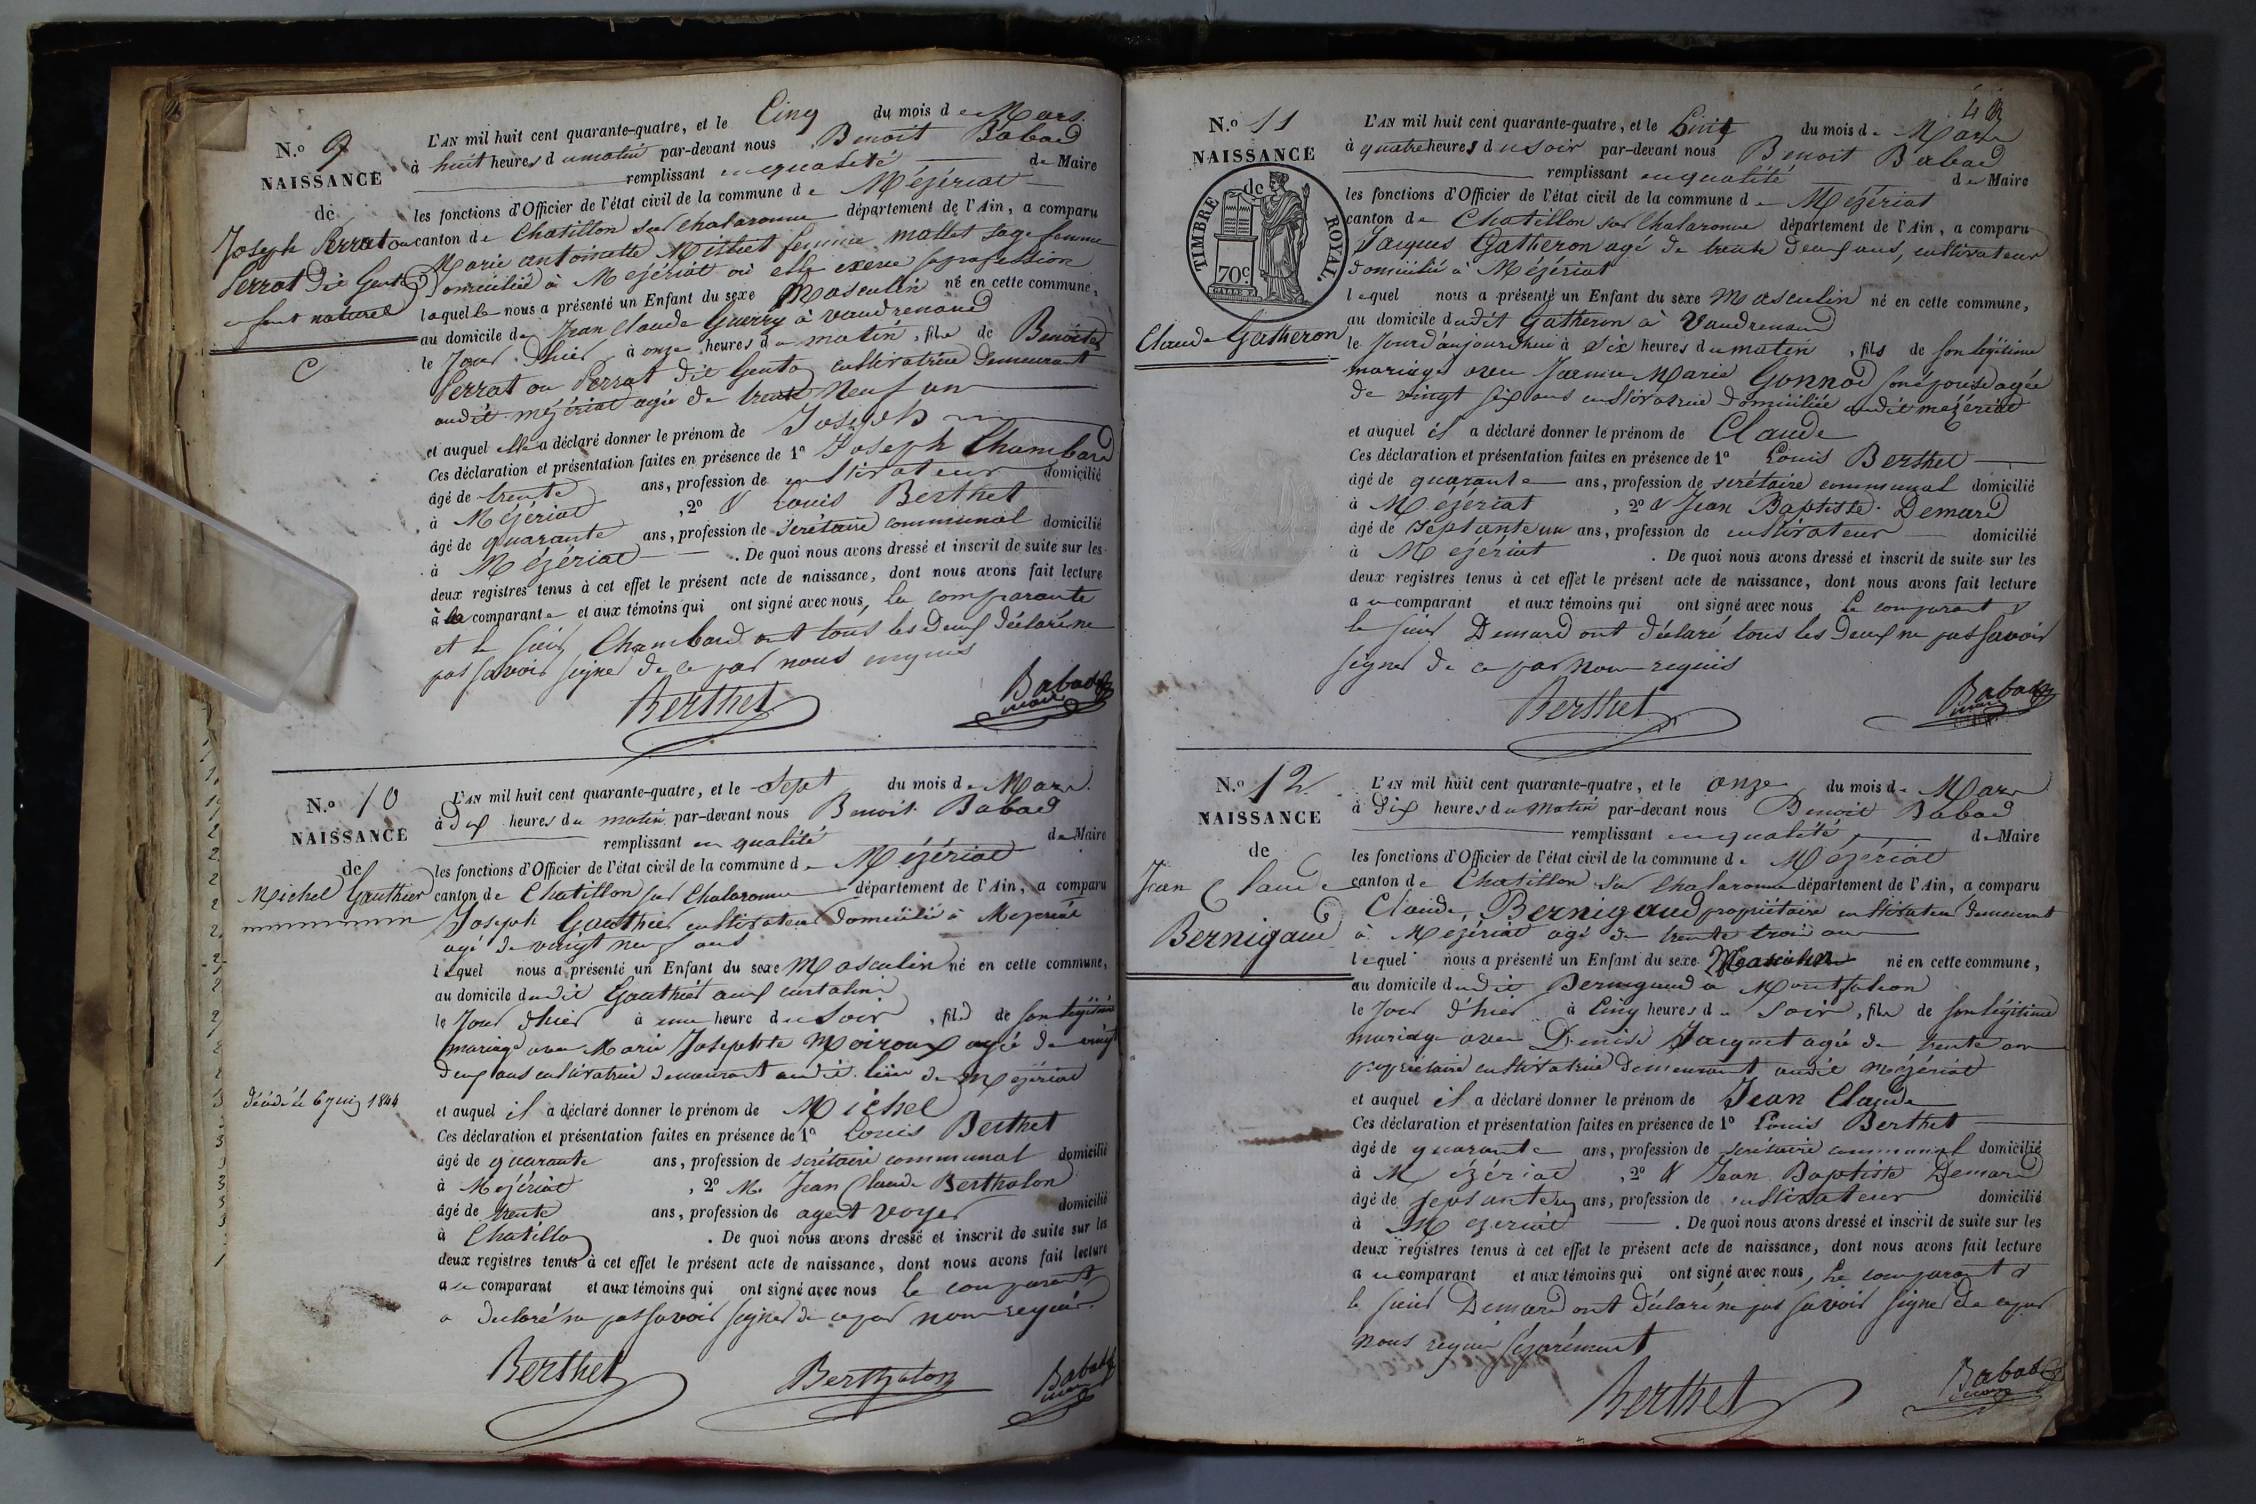 N.o 9
NAISSANCE
de
Joseph Perrat ou
Perrat dit Genta
enfant naturel
C
L'AN mil huit cent quarante-quatre, et le Cinq du mois de Mars
à huit heures du matin par-devant nous Benoit Babad
remplissant en qualité de Maire
les fonctions d'Officier de l'état civil de la commune de Mézériat
canton de Chatillon sur Chalaronne département de l'Ain, a comparu
Marie antoinette Millet femme mallet sage femme
Domiciliée à Mezériat où elle exerce sa profession
laquelle nous a présenté un Enfant du sexe Masculin né en cette commune,
au domicile de Jean Claude Guerry à vaudrenand
le Jour d'hier à onze heures du matin, fils de Benoite
Perrat ou Perrat dit Genta cultivatrice demeurant
audit mézériat agée de trente Neuf an
et auquel elle a déclaré donner le prénom de Joseph
Ces déclaration et présentation faites en présence de 1o Joseph Chambard
âgé de trente ans, profession de cultivateur domicilié
à Mézériat, 2o & Louis Berthet
âgé de quarante ans, profession de secrétaire communal domicilié
à Mézériat. De quoi nous avons dressé et inscrit de suite sur les
deux registres tenus à cet effet le présent acte de naissance, dont nous avons fait lecture
à la comparante et aux témoins qui ont signé avec nous, La comparante
et le sieur Chambard ont tous les deux déclaré ne
pas savoir signer de ce par nous enquis
Berthet Babad
maire
N.o 10
NAISSANCE
de
Michel Gauthier
décédé le 6 juin 1844
L'AN mil huit cent quarante-quatre, et le Sept du mois de Mars
à dix heures du matin par-devant nous Benoit Babad
remplissant en qualité de Maire
les fonctions d'Officier de l'état civil de la commune de Mézériat
canton de Chatillon sur Chalaronne département de l'Ain, a comparu
Joseph Gauthier cultivateur domicilié à Mezeriat
agé de vingt neuf ans
lequel nous a présenté un Enfant du sexe Masculin né en cette commune,
au domicile dudit Gauthier aux
le Jour d'hier à une heure du soir, fils de son légitime
mariage avec Marie Josephte Moiroux agée de vingt
deux ans cultivatrice demeurant audit lieu de Mézériat
et auquel il a déclaré donner le prénom de Michel
Ces déclaration et présentation faites en présence de 1o Louis Berthet
âgé de quarante ans, profession de secrétaire communal domicilié
à Mezériat, 2o M. Jean Claude Berthalon
âgé de trente ans, profession de agent voyer domicilié
à Chatillon. De quoi nous avons dressé et inscrit de suite sur les
deux registres tenus à cet effet le présent acte de naissance, dont nous avons fait lecture
au comparant et aux témoins qui ont signé avec nous le comparant
a déclaré ne pas savoir signer de ce par nous requis
Berthet Berthalon Babad
maire
N.o 11
NAISSANCE
de
TIMBRE ROYAL.
70c
Claude Gatheron
L'AN mil huit cent quarante-quatre, et le Cinq du mois de Mars
à quatre heures du soir par-devant nous Benoit Babad
remplissant en qualité de Maire
les fonctions d'Officier de l'état civil de la commune de Mézériat
canton de Chatillon sur Chalaronne département de l'Ain, a comparu
Jacques Gatheron agé de trente deux ans, cultivateur
domicilié à Mézériat
lequel nous a présenté un Enfant du sexe Masculin né en cette commune,
au domicile dudit Gatheron à Vaudrenand
le Jour d'aujourd'hui à six heures du matin, fils de son légitime
mariage avec Jeanne Marie Gonnod son épouse agée
de vingt six ans cultivatrice domiciliée audit mezériat
et auquel il a déclaré donner le prénom de Claude
Ces déclaration et présentation faites en présence de 1o Louis Berthet
âgé de quarante ans, profession de secrétaire communal domicilié
à Mezériat, 2o & Jean Baptiste Demard
âgé de septante un ans, profession de cultivateur domicilié
à Mezériat. De quoi nous avons dressé et inscrit de suite sur les
deux registres tenus à cet effet le présent acte de naissance, dont nous avons fait lecture
au comparant et aux témoins qui ont signé avec nous, Le comparant &
le sieur Demard ont déclaré tous les deux ne pas savoir
signer de ce par Nous requis
Berthet Babad
maire
N.o 12
NAISSANCE
de
Jean Claude
Bernigaud
L'AN mil huit cent quarante-quatre, et le onze du mois de Mars
à Dix heures du matin par-devant nous Benoit Babad
remplissant en qualité de Maire
les fonctions d'Officier de l'état civil de la commune de Mézériat
canton de Chatillon sur Chalaronne département de l'Ain, a comparu
Claude Bernigaud propriétaire cultivateur demeurant
à Mezériat agé de trente trois ans
lequel nous a présenté un Enfant du sexe Masculin né en cette commune,
au domicile dudit Bernigaud à Montfalcon
le Jour d'hier à Cinq heures du Soir, fils de son légitime
mariage avec Denise Jacquet agée de trente ans
propriétaire cultivatrice demeurant audit Mézériat
et auquel il a déclaré donner le prénom de Jean Claude
Ces déclaration et présentation faites en présence de 1o Louis Berthet
âgé de quarante ans, profession de secrétaire communal domicilié
à Mézériat, 2o & Jean Baptiste Demard
âgé de septante un ans, profession de cultivateur domicilié
à Mezeriat. De quoi nous avons dressé et inscrit de suite sur les
deux registres tenus à cet effet le présent acte de naissance, dont nous avons fait lecture
au comparant et aux témoins qui ont signé avec nous, Le comparant &
le sieur Demard ont déclaré ne pas savoir signer de ce par
nous requis séparément
Berthet Babad
maire